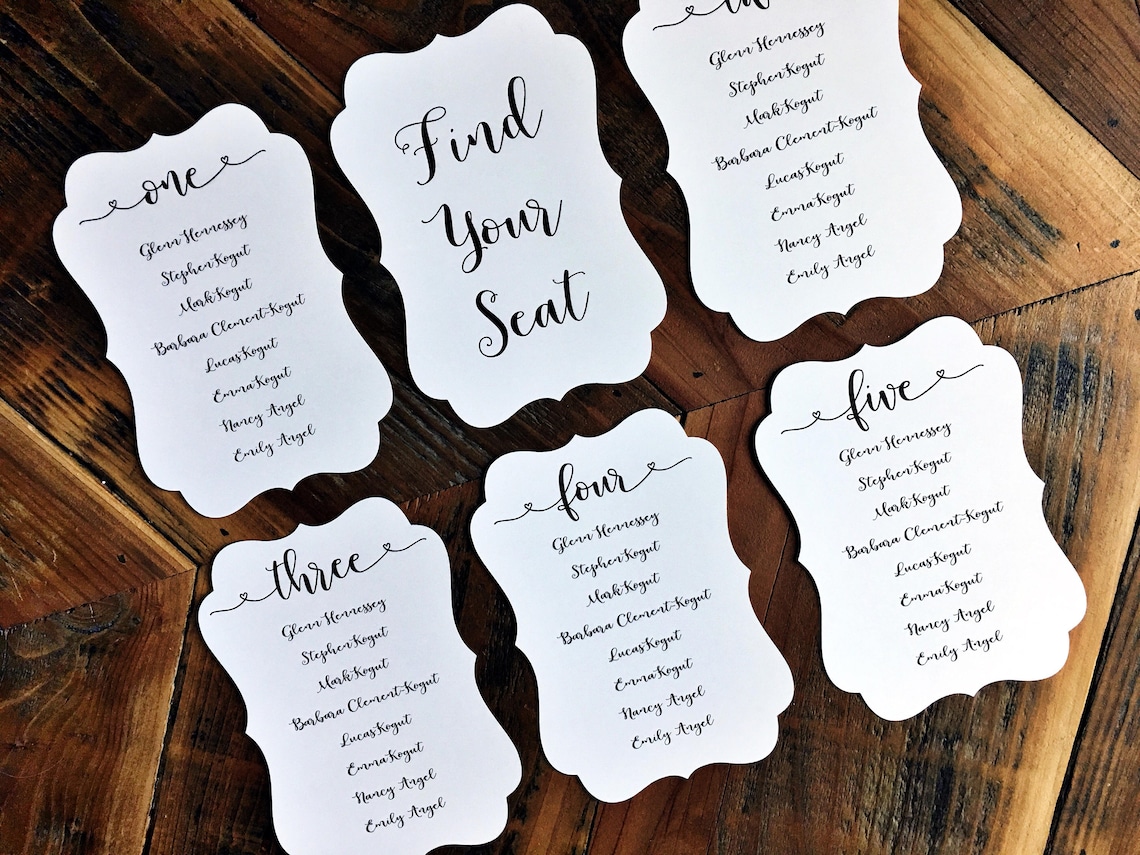 one
Glenn Hennessey
Stephen Kogut
Mark Kogut
Barbara Clement-Kogut
Lucas Kogut
Emma Kogut
Nancy Angel
Emily Angel
Find
Your
Seat
Glenn Hennessey
Stephen Kogut
Mark Kogut
Barbara Clement-Kogut
Lucas Kogut
Emma Kogut
Nancy Angel
Emily Angel
three
Glenn Hennessey
Stephen Kogut
Mark Kogut
Barbara Clement-Kogut
Lucas Kogut
Emma Kogut
Nancy Angel
Emily Angel
four
Glenn Hennessey
Stephen Kogut
Mark Kogut
Barbara Clement-Kogut
Lucas Kogut
Emma Kogut
Nancy Angel
Emily Angel
five
Glenn Hennessey
Stephen Kogut
Mark Kogut
Barbara Clement-Kogut
Lucas Kogut
Emma Kogut
Nancy Angel
Emily Angel